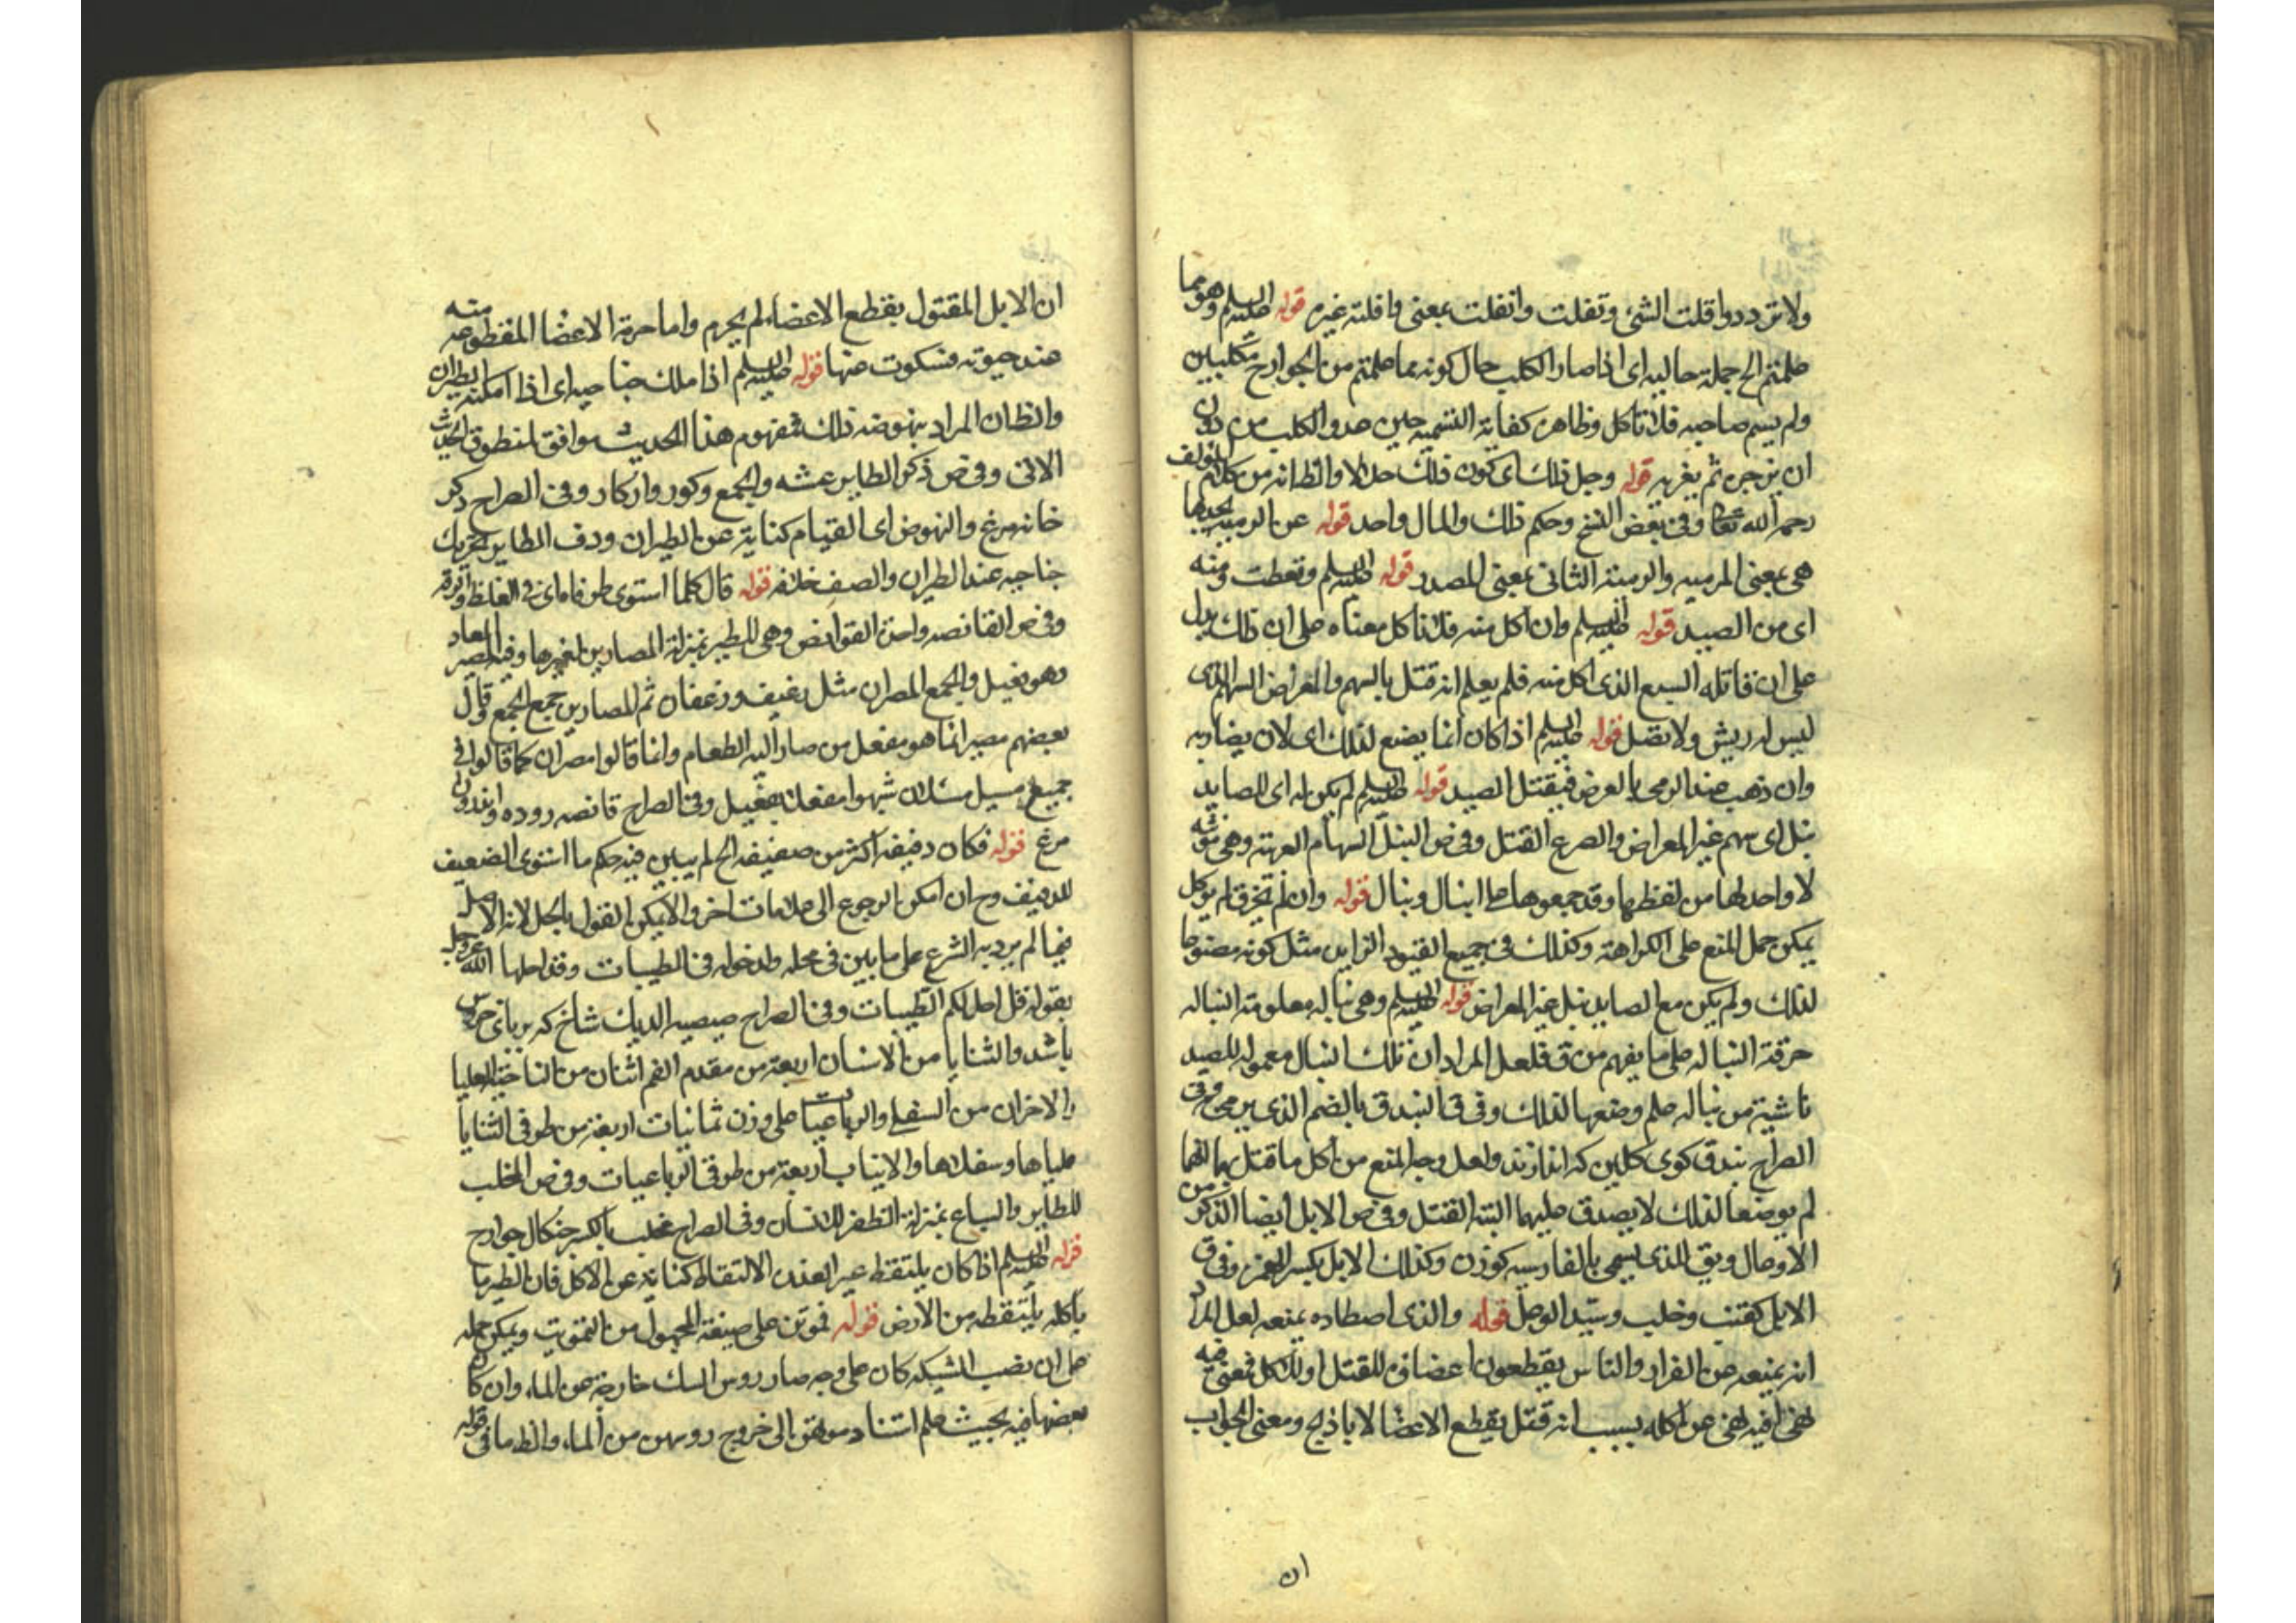 ولا تردد وافلت الشئ وتفلت وانفلت بمعنى وافلته غيره قوله عليه السلم وهو مما
علمتم الخ جملة حاليه اى اذا صار الكلب حال كونه مما علمتم من الجوارح مكلبين
ولم يسم صاحبه فلا تاكل وظاهره كفاية التسميه حين عدو الكلب من دون
ان يزجره ثم يغريه قوله وجل ذلك اى كون ذلك حلالا والظ انه من كلام المؤلف
رحمه الله تعالى وفى بعض النسخ وحكم ذلك والمال واحد قوله عن الرميه يجدها
هى بمعنى المرميه والرمية الثانى بمعنى المصدر قوله عليه السلم وتعطت ومنه
اى من الصيد قوله عليه السلم وان اكل منه فلا تاكل معناه على ان ذلك يدل
على ان قاتله السبع الذى اكل منه فلم يعلم انه قتل بالسهم والمعراض السهم الذى
ليس له ريش ولا نصل قوله عليه السلم اذا كان انما يصنع لذلك اى لان يصاد به
وان ذهب عند الرمى بالعرض فيقتل الصيد قوله عليه السلم لم يكن له اى للصايد
نبل اى سهم غير المعراض والصرع القتل وفى ص النبل السهام العربية وهى مؤنثه
لا واحد لها من لفظها وقد جمعوها على انبال ونبال قوله وان لم تخرق لم يوكل
يمكن حمل المنع على الكراهة وكذلك فى جميع القيود الزايده مثل كونه مصنوعا
لذلك ولم يكن مع الصايد نبل غير المعراض قوله عليه السلم وهى نباله معلومة النباله
حرفة النباله على ما يفهم من ق فلعل المراد ان تلك النبال معموله للصيد
ناشية من نباله علم وضعها لذلك وفى ق البندق بالضم الذى يرمى به وفى
الصراح بندق كوى كلين كه اندازند ولعل وجه المنع من اكل ما قتل بهما انهما
لم يوضعا لذلك لا يصدق عليهما البتة القتل وفى ص الابل ايضا الذكر من
الاوعال ويق الذى يسمى بالفارسيه كوزن وكذلك الابل بكسر الهمزه وفى ق
الابل كقنب وخلب وسيد الوعل قوله والذى اصطاده يمنعه لعل المراد
انه يمنعه عن الفرار والناس يقطعون اعضائه للقتل او للاكل فمعنى فيه
نهى افيه نهى عن اكله بسبب انه قتل بقطع الاعضا لا بالذبح ومعنى الجواب
ان
ان الابل المقتول بقطع الاعضاء لم يحرم واما حرمة الاعضا المقطوعه منه
عند حيوته فسكوت عنها قوله عليه السلم اذا ملك جناحيه اى اذا امكنه الطيران
والظ ان المراد بنهوضه ذلك فمفهوم هذا الحديث موافق لمنطوق الحديث
الاتى وفى ص ذكر الطاير عشه والجمع وكور واوكار وفى الصراح وكر
خانه مرغ والنهوض اى القيام كناية عن الطيران ودف الطاير تحريك
جناحيه عند الطيران والصف خلافه قوله قال كلما استوى طرفاه اى فى الغلظ والدقة
وفى ص القانصه واحدة القوانص وهى للطير بمنزلة المصارين لغيرها وفيه المصير المعاد
وهو فعيل والجمع المصران مثل رغيف ورغفان ثم المصارين جمع الجمع وقال
بعضهم مصير انما هو مفعل من صار اليه الطعام وانما قالوا مصران كما قالوا فى
جميع مسيل مسلان شبهوا مفعلا بفعيل وفى الصراح قانصه روده اندرون
مرغ قوله فكان دفيفه اكثر من صفيفه الخ لم يبين فيه حكم ما استوى الصفيف
للدفيف وح ان امكن الرجوع الى علامات اخر والا يمكن القول بالحل لانه الاصل
فيما لم يرد به الشرع على ما بين فى محله ولدخوله فى الطيبات وقد احلها الله عز وجل
بقوله قل احل لكم الطيبات وفى الصراح صيصيه الديك شاخ كه بر پاى خروس
باشد والثنايا من الانسان اربعة من مقدم الفم اثنان من الناحية العليا
والاخران من السفلى والرباعيات على وزن ثمانيات اربعة من طرفى الثنايا
علياها وسفلاها والانياب اربعة من طرفى الرباعيات وفى ص المخلب
للطاير والسباع بمنزلة الظفر للانسان وفى الصراح مخلب بالكسر جنكال جوارح
قوله عليه السلم اذا كان يلتقط غير العذره الالتقاط كناية عن الاكل فان الطير ما
ياكله يلتقطه من الارض قوله فموتن على صيغة المجهول من التمويت ويمكن حمله
على ان نصب الشبكه كان على وجه صار روس السمك خارجة عن الماء وان كان
بعضها فيه بحيث علم استناد موتهن الى خروج روسهن من الماء والظ ما فى قوله